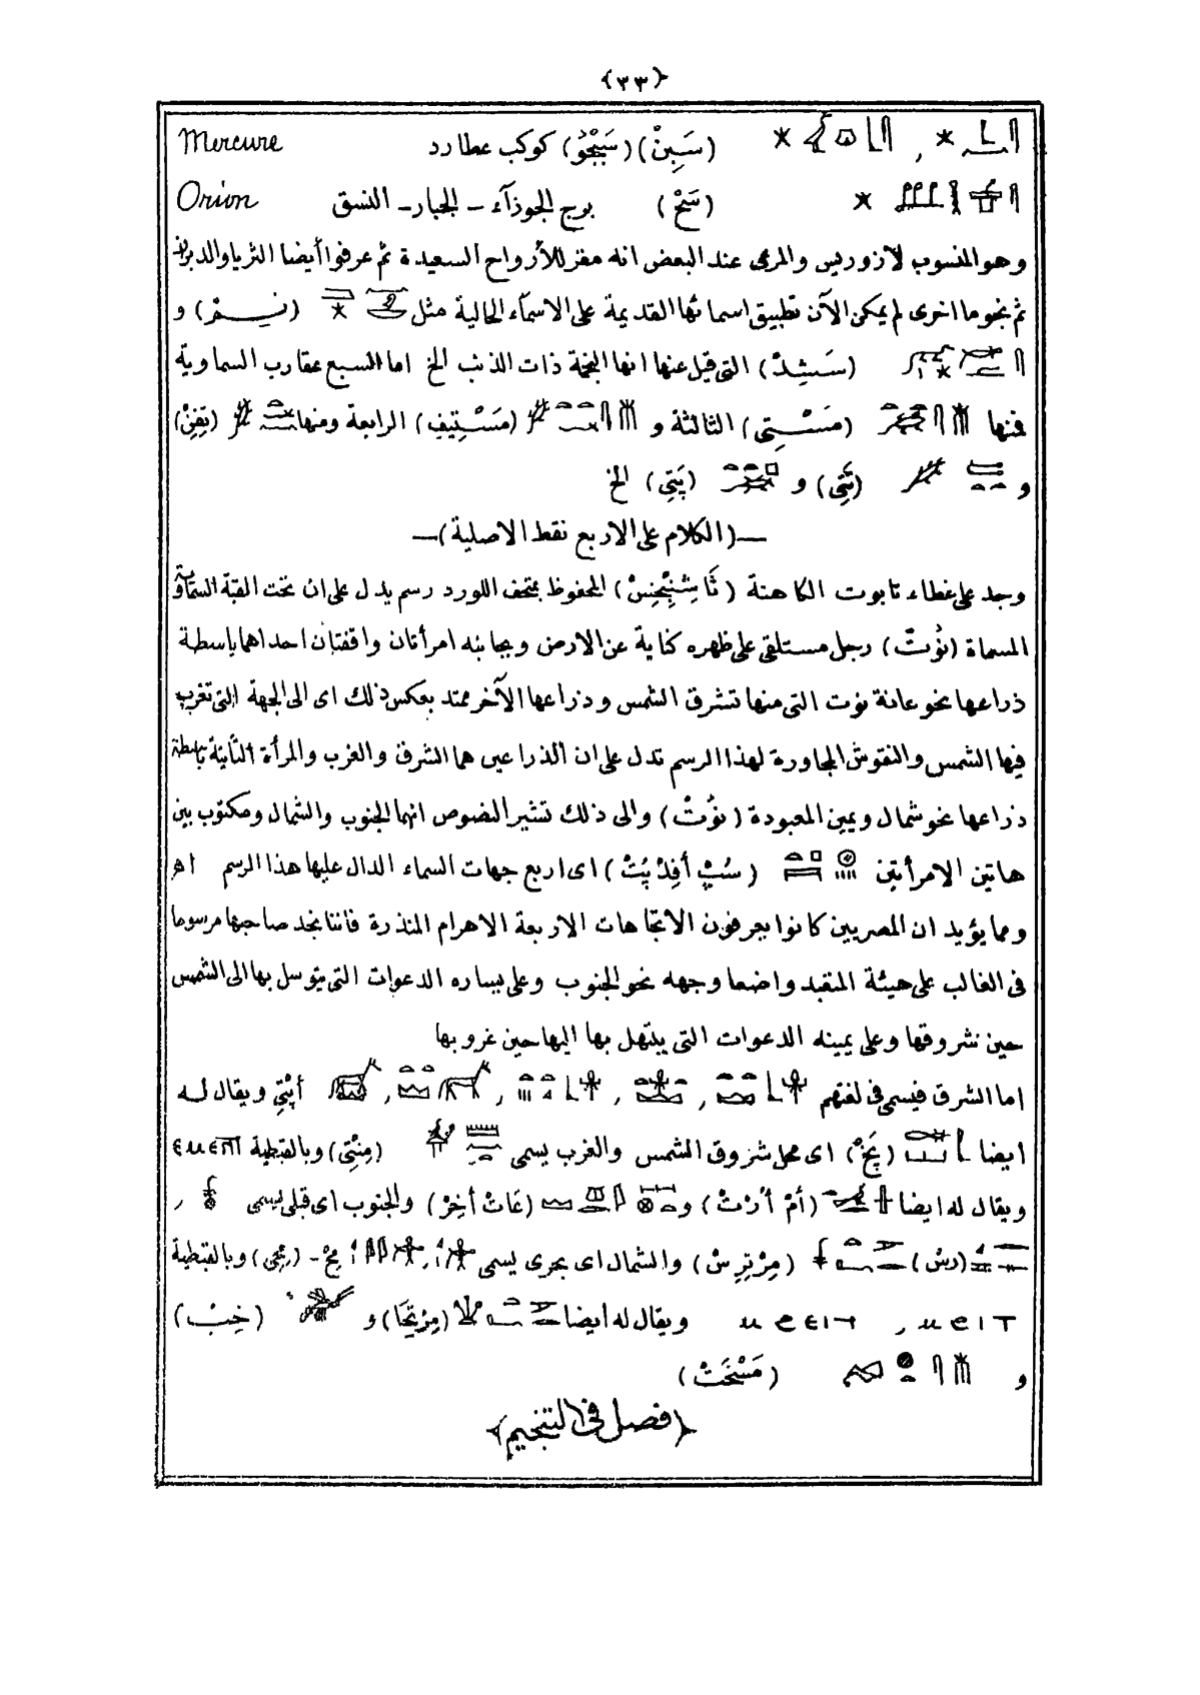 ﴿٣٣﴾
(سَبِنْ) (سَبِجُوْ) كوكب عطارد Mercure
(سَحْ) برج الجوزآء - الجبار - النسق Orion
وهو المنسوب لازوريس والمرعى عند البعض انه مقر للأرواح السعيدة ثم عرفوا أيضا الثريا والدبران
ثم نجوما اخرى لم يمكن الآن تطبيق اسمائها القديمة على الاسمآء الحالية مثل (نِسْرْ) و
(سَشِدْ) التى قيل عنها انها النجمة ذات الذنب الخ اما السبع عقارب السماوية
فمنها (مَسْتِى) الثالثة و (مَسْتِيفِ) الرابعة ومنها (تِفِنْ)
و (ثَتِى) و (پَتِى) الخ
—(الكلام على الاربع نقط الاصلية)—
وجد على غطاء تابوت الكاهنة (تَاشِنْپِخِنِسْ) المحفوظ بمتحف اللورد رسم يدل على ان تحت القبة السماوية
المسماة (نُوْتْ) رجل مستلقى على ظهره كناية عن الارض وبجانبه امرأتان واقفتان احداهما باسطة
ذراعها نحو عانة نوت التى منها تشرق الشمس وذراعها الآخر ممتد بعكس ذلك اى الى الجهة التى تغرب
فيها الشمس والنقوش المجاورة لهذا الرسم تدل على ان الذراعين هما الشرق والغرب والمرأة الثانية باسطة
ذراعها نحو شمال ويمين المعبودة (نُوتْ) والى ذلك تشير النصوص انهما الجنوب والشمال ومكتوب بين
هاتين الامرأتين (سُپِ أَفِدْ پِتْ) اى اربع جهات السماء الدال عليها هذا الرسم اهـ
ومما يؤيد ان المصريين كانوا يعرفون الاتجاهات الاربعة الاهرام المنذرة فاننا نجد صاحبها مرسوما
فى الغالب على هيئة المتعبد واضعا وجهه نحو الجنوب وعلى يساره الدعوات التى يتوسل بها الى الشمس
حين شروقها وعلى يمينه الدعوات التى يبتهل بها اليها حين غروبها
اما الشرق فيسمى فى لغتهم , , , , أَبْتِى ويقال له
ايضا (پَخْ) اى محل شروق الشمس والغرب يسمى (مِنْتِى) وبالقبطية ⲉⲙⲉⲛⲧ
ويقال له ايضا (أَمْ أُرْتْ) و (عَاتْ أُخِرْ) والجنوب اى قبلى يسمى ,
(رسْ) (مِرْتِرِسْ) والشمال اى بحرى يسمى , مِحْ - (مِحِى) وبالقبطية
ⲙϩⲓⲧ , ⲙϩⲉⲓⲧ ويقال له ايضا (مِرْتِحَا) و (خِبْ)
و (مَسْخَتْ)
﴿فصل فى التنجيم﴾